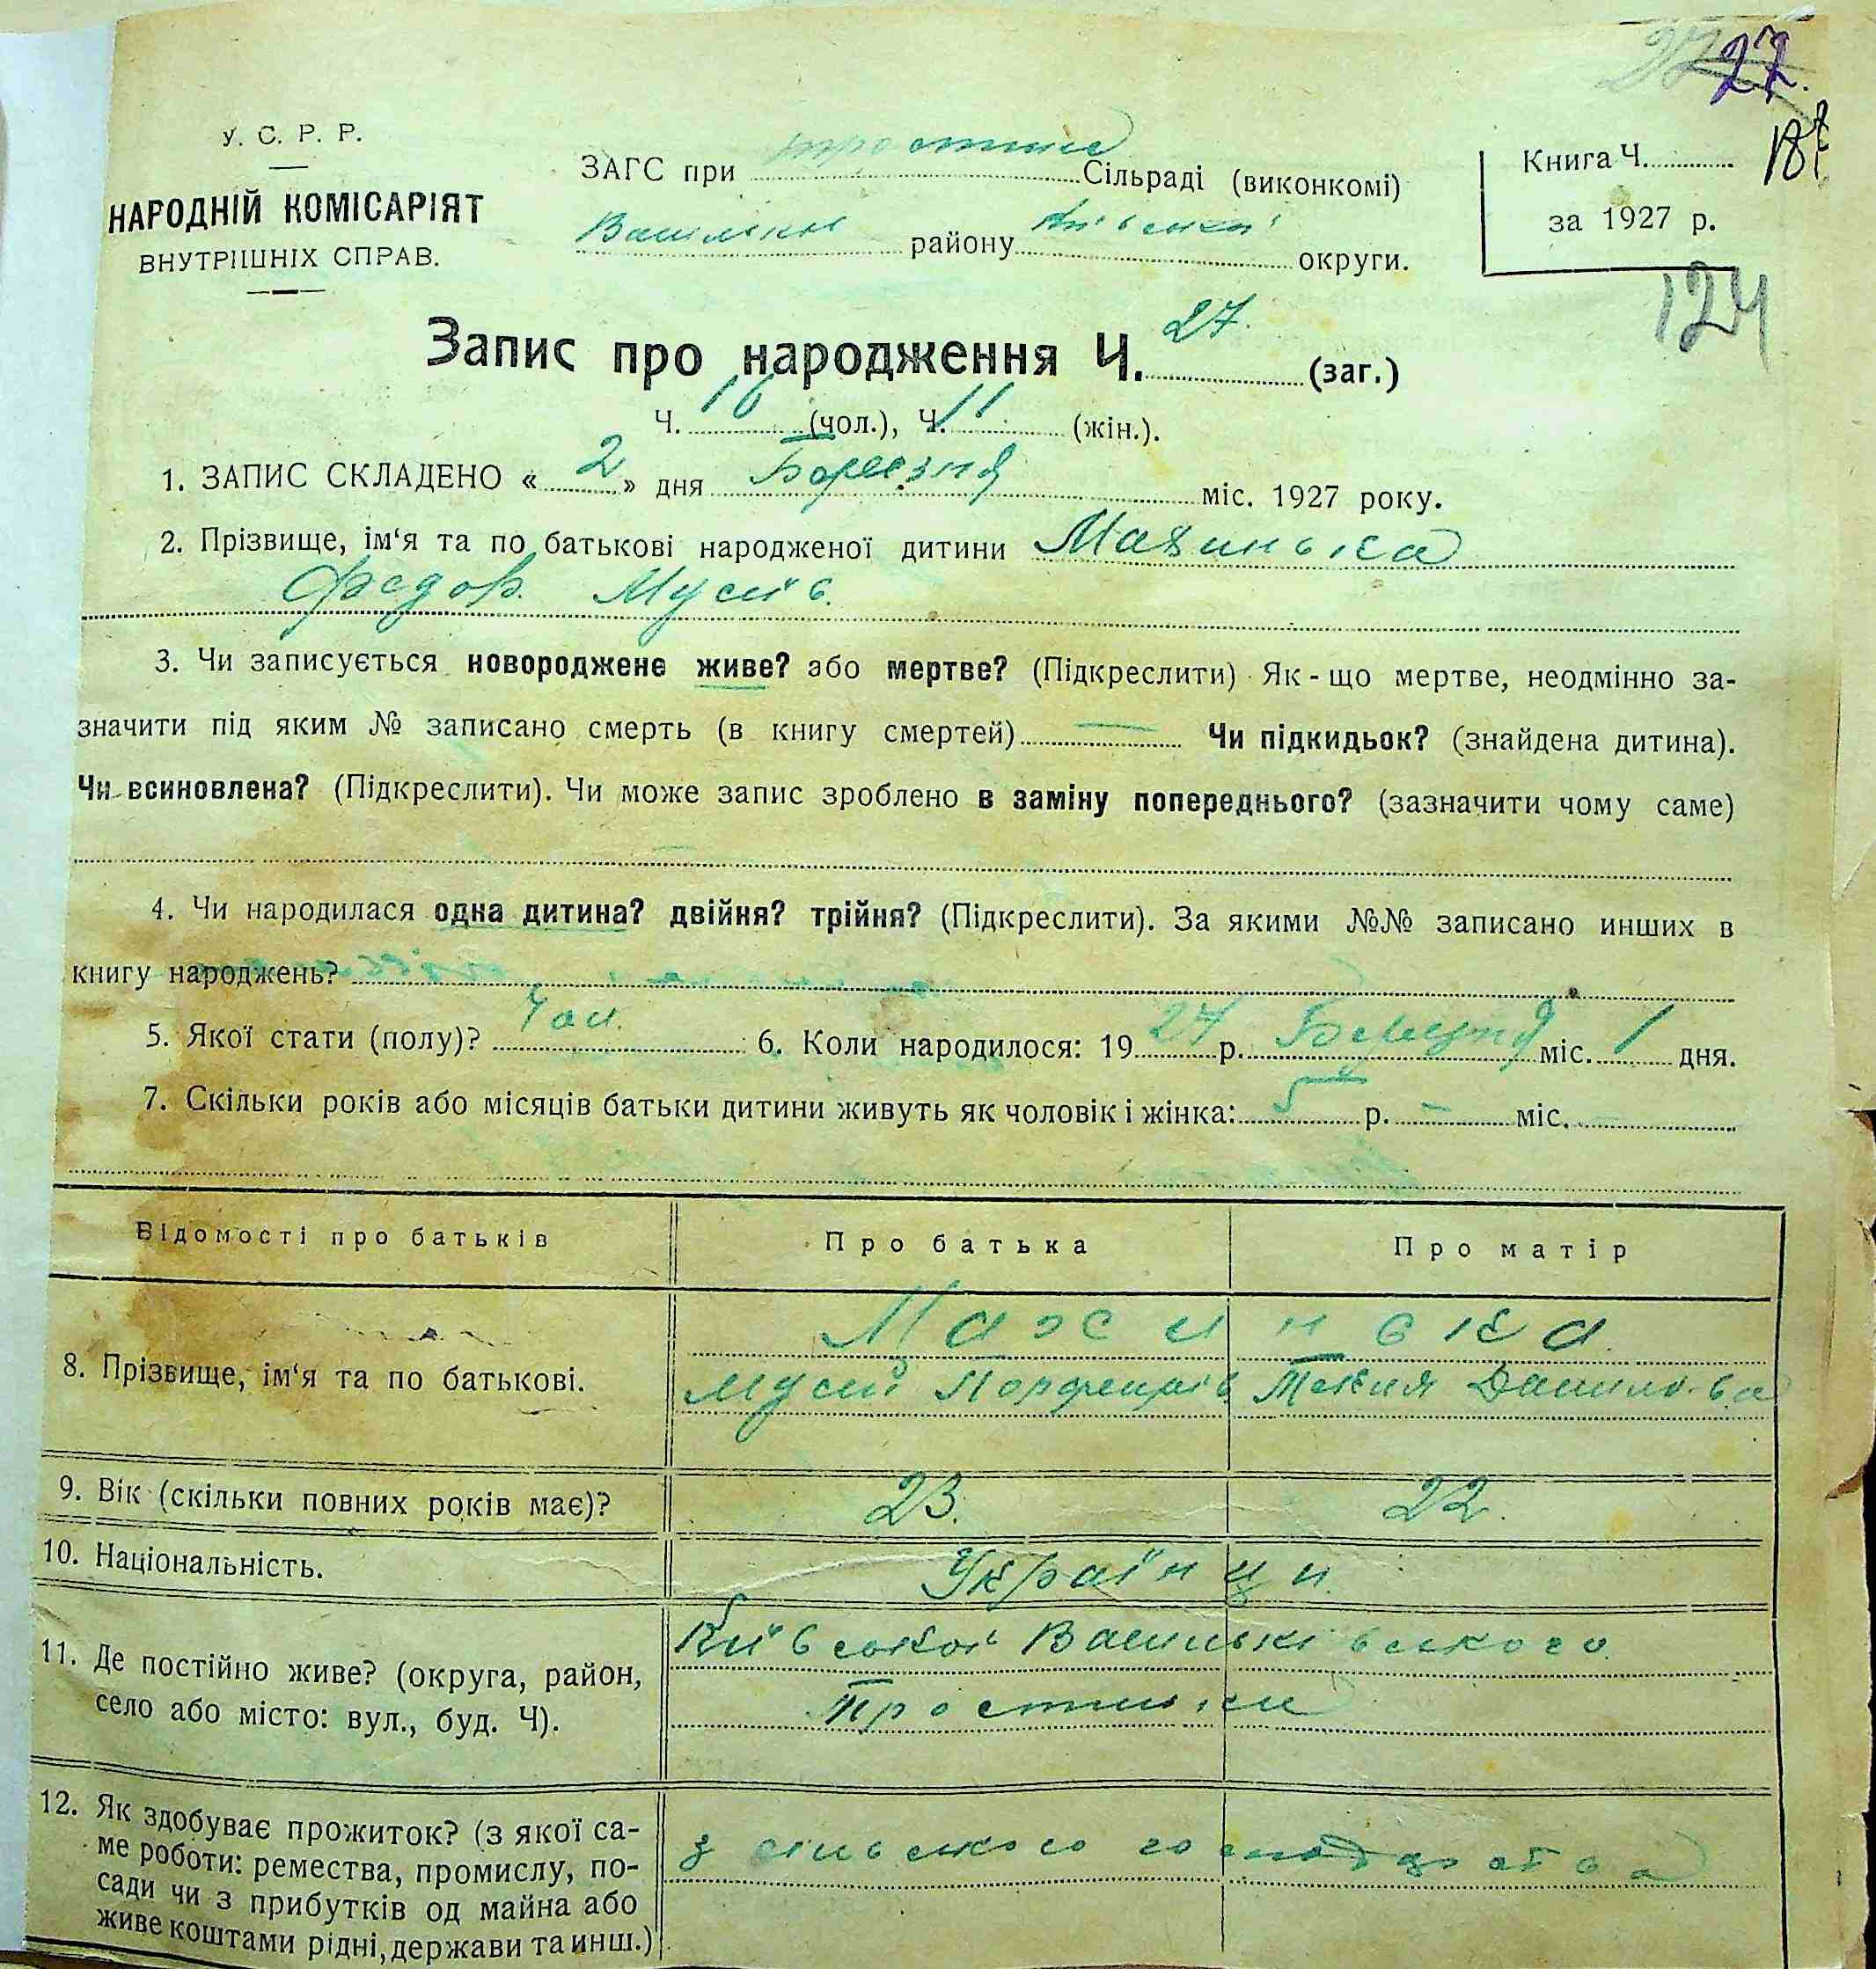 27.
У. С. Р. Р.
НАРОДНІЙ КОМІСАРІЯТ
ВНУТРІШНІХ СПРАВ.
ЗАГС при Сільраді (виконкомі)
району округи.
Книга Ч.
187
за 1927 р.
124
Запис про народження Ч. 27. (заг.)
Ч. 16 (чол.), Ч. 11 (жін.).
1. ЗАПИС СКЛАДЕНО « 2 » дня Березня міс. 1927 року.
2. Прізвище, ім‘я та по батькові народженої дитини
Федор. Мусіїв.
3. Чи записується новороджене живе? або мертве? (Підкреслити) Як-що мертве, неодмінно за-
значити під яким № записано смерть (в книгу смертей) — Чи підкидьок? (знайдена дитина).
Чи всиновлена? (Підкреслити). Чи може запис зроблено в заміну попереднього? (зазначити чому саме)
4. Чи народилася одна дитина? двійня? трійня? (Підкреслити). За якими №№ записано инших в
книгу народжень?
5. Якої стати (полу)? Чол. 6. Коли народилося: 19 27 р. Березня міс. 1 дня.
7. Скільки років або місяців батьки дитини живуть як чоловік і жінка: 5 р. – міс.
Відомості про батьків Про батька Про матір
8. Прізвище, ім‘я та по батькові.
Махинька
Мусій Парфенів Текля Данилова
9. Вік (скільки повних років має)? 23. 22.
10. Національність. Українци.
11. Де постійно живе? (округа, район,
село або місто: вул., буд. Ч).
Київської Васильківського
Тростинки
12. Як здобуває прожиток? (з якої са-
ме роботи: ремества, промислу, по-
сади чи з прибутків од майна або
живе коштами рідні, держави та инш.)
з сільського господарства